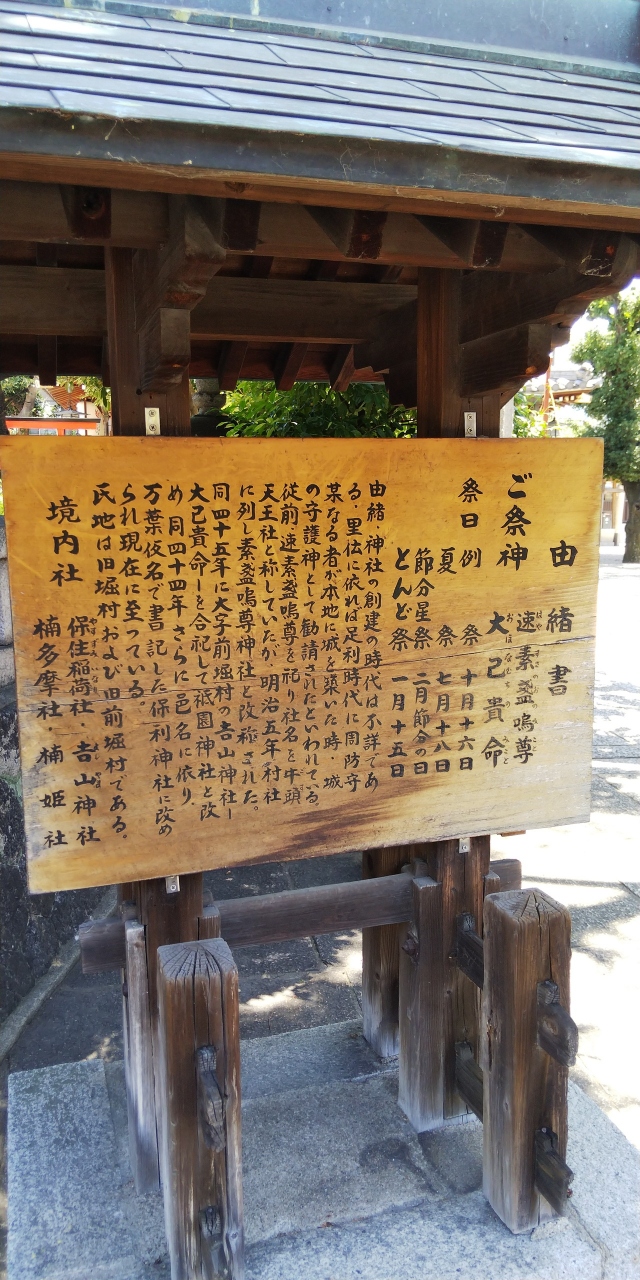 由緒書
ご祭神 速素盞嗚尊
はや すさのをの みこと
大己貴命
おほ なむちの みこと
祭日 例祭 十月十六日
夏祭 七月十八日
節分星祭 二月節分の日
とんど祭 一月十五日
由緒・神社の創建の時代は不詳であ
る・里伝に依れば足利時代に周防守
某なる者が本地に城を築いた時・城
の守護神として勧請されたといわれている。
従前・速素盞嗚尊を祀り社名を牛頭
天王社と称していたが、明治五年村社
に列し素盞嗚尊神社と改称された。
同四十五年に大字前堀村の吉山神社ー
大己貴命ーを合祀して祇園神社と改
め、同四十四年、さらに邑名に依り、
万葉仮名で書記した保利神社に改め
られ現在に至っている。
氏地は旧堀村および旧前堀村である。
境内社
保住稲荷社・吉山神社
楠多摩社・楠姫社